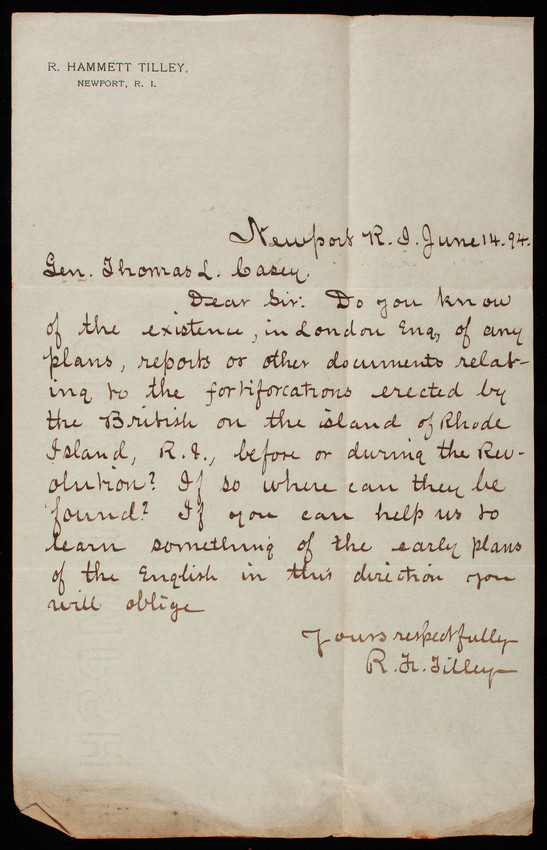 R. HAMMETT TILLEY,
NEWPORT, R. I.
Newport R. I. June 14. 94.
Gen. Thomas L. Casey.
Dear Sir: Do you know
of the existence, in London Eng, of any
plans, reports or other documents relat-
ing to the fortiforcations erected by
the British on the island of Rhode
Island, R. I., before or during the Rev-
olution? If so where can they be
found? If you can help us to
learn something of the early plans
of the English in this direction you
will oblige
Yours respectfully
R. H. Tilley